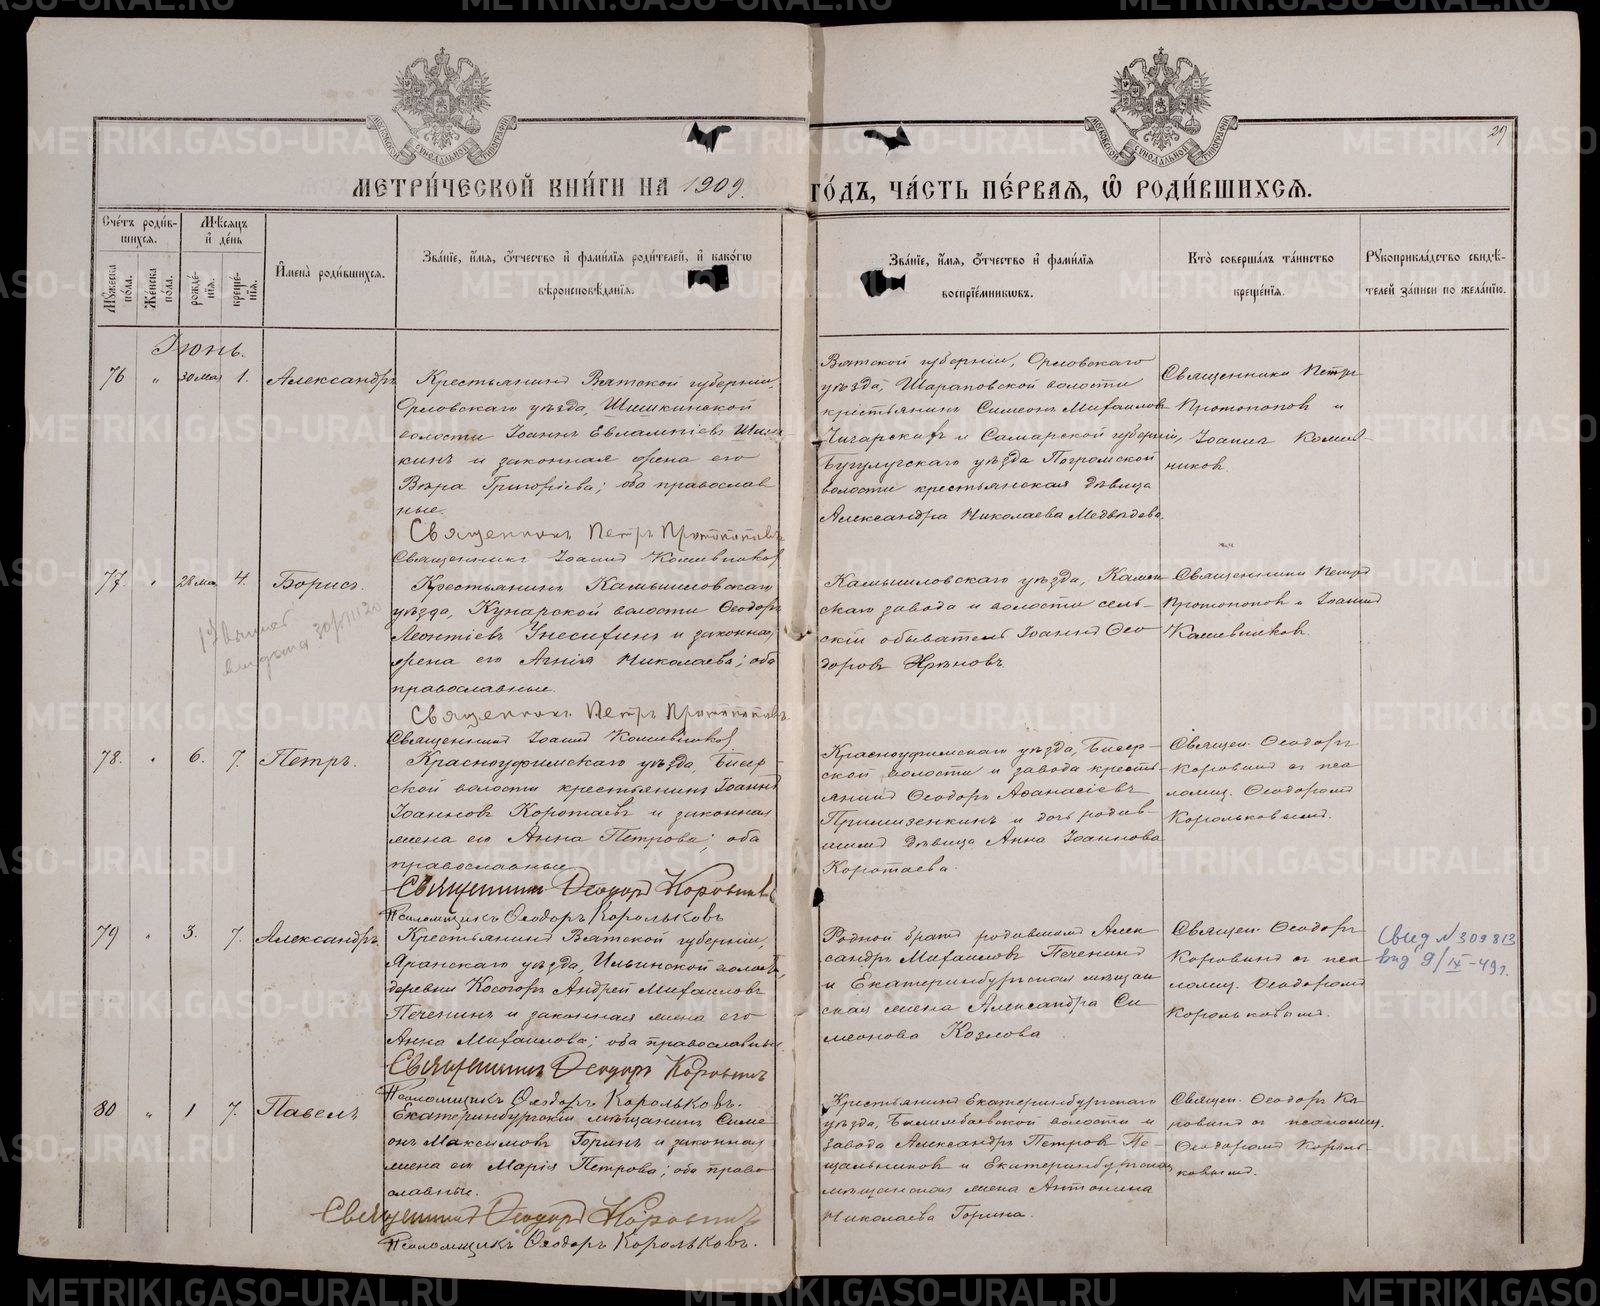 29
МЕТРИ́ЧЕСКОЙ КНИ́ГИ НА 1909. ГО́ДЪ, ЧА́СТЬ ПЕ́РВАЯ, Ѡ҆ РОДИ́ВШИХСЯ.
Сче́тъ роди́в-
шихся.
Мѣ́сяцъ
и҆ де́нь
Мꙋ́жеска по́ла.
Же́нска по́ла.
рожде́-
нїя.
креще́-
нїя.
И҆мена̀ роди́вшихся.
Зва́нїе, и҆́мя, ѻ҆́тчество и҆ фами́лїя роди́телей, и҆ како́гѡ
вѣроисповѣ́данїя.
Зва́нїе, и҆́мя, ѻ҆́тчество и҆ фами́лїя
воспрїе́мникѡвъ.
Кто̀ соверша́лъ та́инство
креще́нїя.
Рꙋкоприкла́дство свидѣ́-
телей за́писи по жела́нїю.
Іюнь.
76 " 30 мая 1. Александръ
Крестьянинъ Вятской губерніи,
Орловскаго уѣзда, Шишкинской
волости Іоаннъ Евлампіевъ Шиш-
кинъ и законная жена его
Вѣра Григоріева; оба православ
ные.
Священникъ Петръ Протопоповъ
Священникъ Іоаннъ Кошевников
Вятской губерніи, Орловскаго
уѣзда, Шараповской волости
крестьянинъ Симеонъ Михаиловъ
и Самарской губерніи,
Бугулугскаго уѣзда Погромской
волости крестьянская дѣвица
Александра Николаева Медвѣдева.
Священники Петръ
Протопопов и
Іоаннъ Кошев-
ников.
77. " 28 мая 4. Борисъ.
Крестьянинъ Камышловскаго
уѣзда, Кунарской волости Ѳеодоръ
Леонтіевъ и законная
жена его Агнія Николаева; оба
православные.
Священникъ Петръ Протопоповъ
Священникъ Іоаннъ Кошевников
Камышловскаго уѣзда, Камен
скаго завода и волости сель-
скій обыватель Іоаннъ Ѳео
доровъ
Священники Петръ
Протопопов и Іоаннъ
Кошевников.
78. " 6. 7. Петръ.
Красноуфимскаго уѣзда, Бисер-
ской волости крестьянинъ Іоаннъ
Іоанновъ Коротаевъ и законная
жена его Анна Петрова; оба
православные
Священникъ Ѳеодоръ Коровинъ
Псаломщикъ Ѳеодоръ Корольковъ
Красноуфимскаго уѣзда, Бисер-
ской волости и завода кресть-
янинъ Ѳеодоръ Аѳанасіевъ
и дочь родив-
шихъ дѣвица Анна Іоаннова
Коротаева.
Священ. Ѳеодоръ
Коровинъ съ пса
ломщ. Ѳеодоромъ
Корольковымъ.
79 " 3. 7. Александръ
Крестьянинъ Вятской губерніи,
Яранскаго уѣзда, Ильинской волости,
деревни Косогоръ Андрей Михаиловъ
Печенинъ и законная жена его
Анна Михаилова; оба православные.
Священникъ Ѳеодоръ Коровинъ
Псаломщикъ Ѳеодоръ Корольковъ.
Родной братъ родившихъ Алек
сандръ Михаиловъ Печенинъ
и Екатеринбургская мѣщан
ская жена Александра Си
меонова Козлова.
Священ. Ѳеодоръ
Коровинъ съ пса
ломщ. Ѳеодоромъ
Корольковымъ.
Свид № 309813
выд 9/IX-49 г.
80 " 1 7. Павелъ
Екатеринбургскій мѣщанинъ Симе
онъ Максимовъ Горинъ и законная
жена его Марія Петрова; оба право
славные.
Священникъ Ѳеодоръ Коровинъ
Псаломщикъ Ѳеодоръ Корольковъ.
Крестьянинъ Екатеринбургскаго
уѣзда, Билимбаевской волости и
завода Александръ Петровъ Пе-
щальников и Екатеринбургская
мѣщанская жена Антонина
Николаева Горина.
Священ. Ѳеодоръ Ко
ровинъ съ псаломщ.
Ѳеодоромъ Король
ковымъ.
METRIKI.GASO-URAL.RU